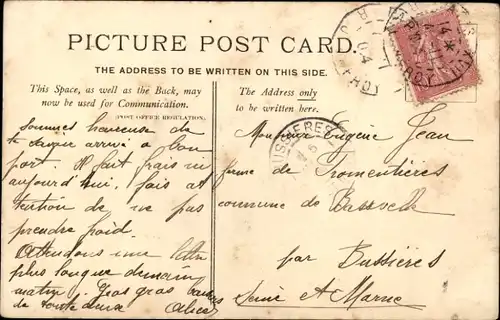 PICTURE POST CARD.
THE ADDRESS TO BE WRITTEN ON THIS SIDE.
This Space, as well as the Back, may
now be used for Communication.
(POST OFFICE REGULATION).
The Address only
to be written here.
Sommes heureuse de
te savoir arrivé a bon
port. Il fait frais ici
aujourd'hui, fais at
tention de ne pas
prendre froid.
Attendons une lettre
plus longue demain
matin. Gros gros baisers
de toute deux Alice
Monsieur Eugène Jean
ferme de Fromentières
commune de Bassevelle
par Bussières
Seine et Marne
BUSSIERES